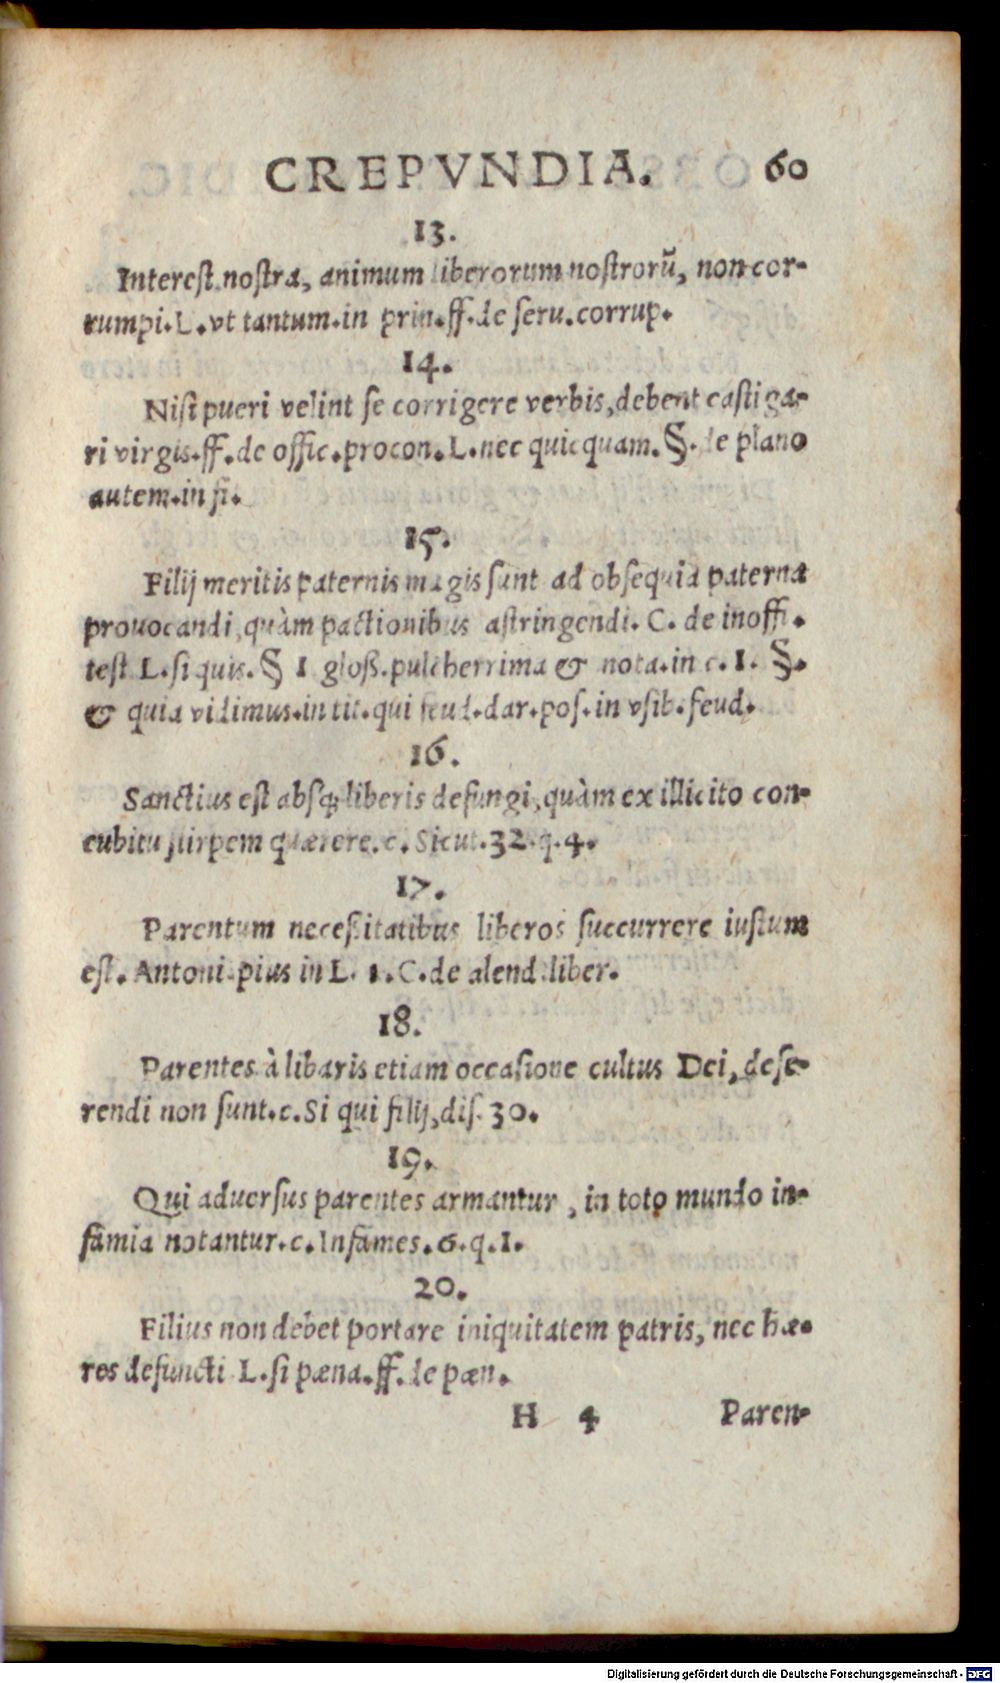 CREPVNDIA. 60
13.
Interest nostra, animum liberorum nostrorũ, non cor-
rumpi. L. vt tantum. in prin. ff. de seru. corrup.
14.
Nisi pueri velint se corrigere verbis, debent castiga-
ri virgis. ff. de offic. procon. L. nec quicquam. §. de plano
autem. in fi.
15.
Filij meritis paternis magis sunt ad obsequia paterna
prouocandi, quàm pactionibus astringendi. C. de inoffi.
test L. si quis. § 1 gloß. pulcherrima & nota. in c. 1. §.
& quia vidimus. in tit. qui feud. dar. pos. in vsib. feud.
16.
Sanctius est absq; liberis defungi, quàm ex illicito con-
cubitu stirpem quærere. c. Sicut. 32. q. 4.
17.
Parentum necessitatibus liberos succurrere iustum
est. Antoni. pius in L. 1. C. de alend. liber.
18.
Parentes à libaris etiam occasione cultus Dei, dese-
rendi non sunt. c. Si qui filij, dis. 30.
19.
Qui aduersus parentes armantur, in toto mundo in-
famia notantur. c. Infames. 6. q. 1.
20.
Filius non debet portare iniquitatem patris, nec hæ-
res defuncti L. si pæna. ff. de pæn.
H 4 Paren-
Digitalisierung gefördert durch die Deutsche Forschungsgemeinschaft - DFG